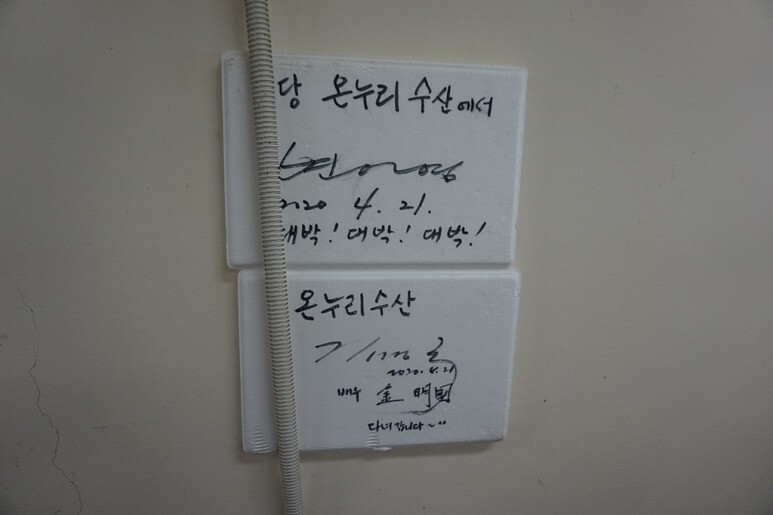 당 온누리 수산에서
2020 4. 21.
대박! 대박! 대박!
온누리수산
2020. 4. 21
배우 金 明國
다녀갑니다~^^